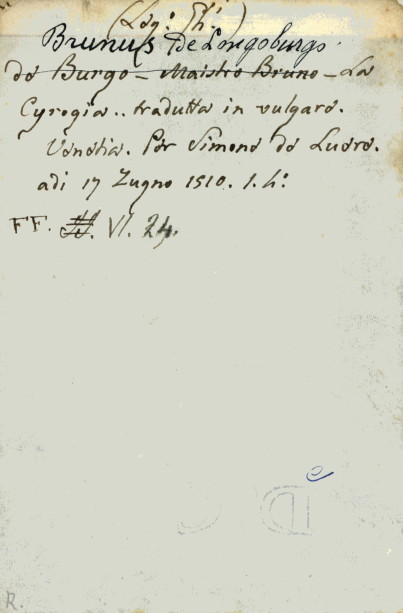 (Leg. Th.)
Brunus De Longoburgo.
de Burgo - Maistro Bruno - La
Cyrogia.. tradutta in vulgare.
Venetia. Per Simone de Luere.
adi 17 Zugno 1510. f. h.
FF. VI. 24.
R.